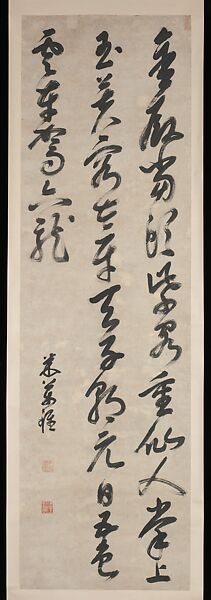 金殿當頭紫閣重仙人掌上
玉芙蓉太平天子朝元日五色
雲車駕六龍
米萬鍾